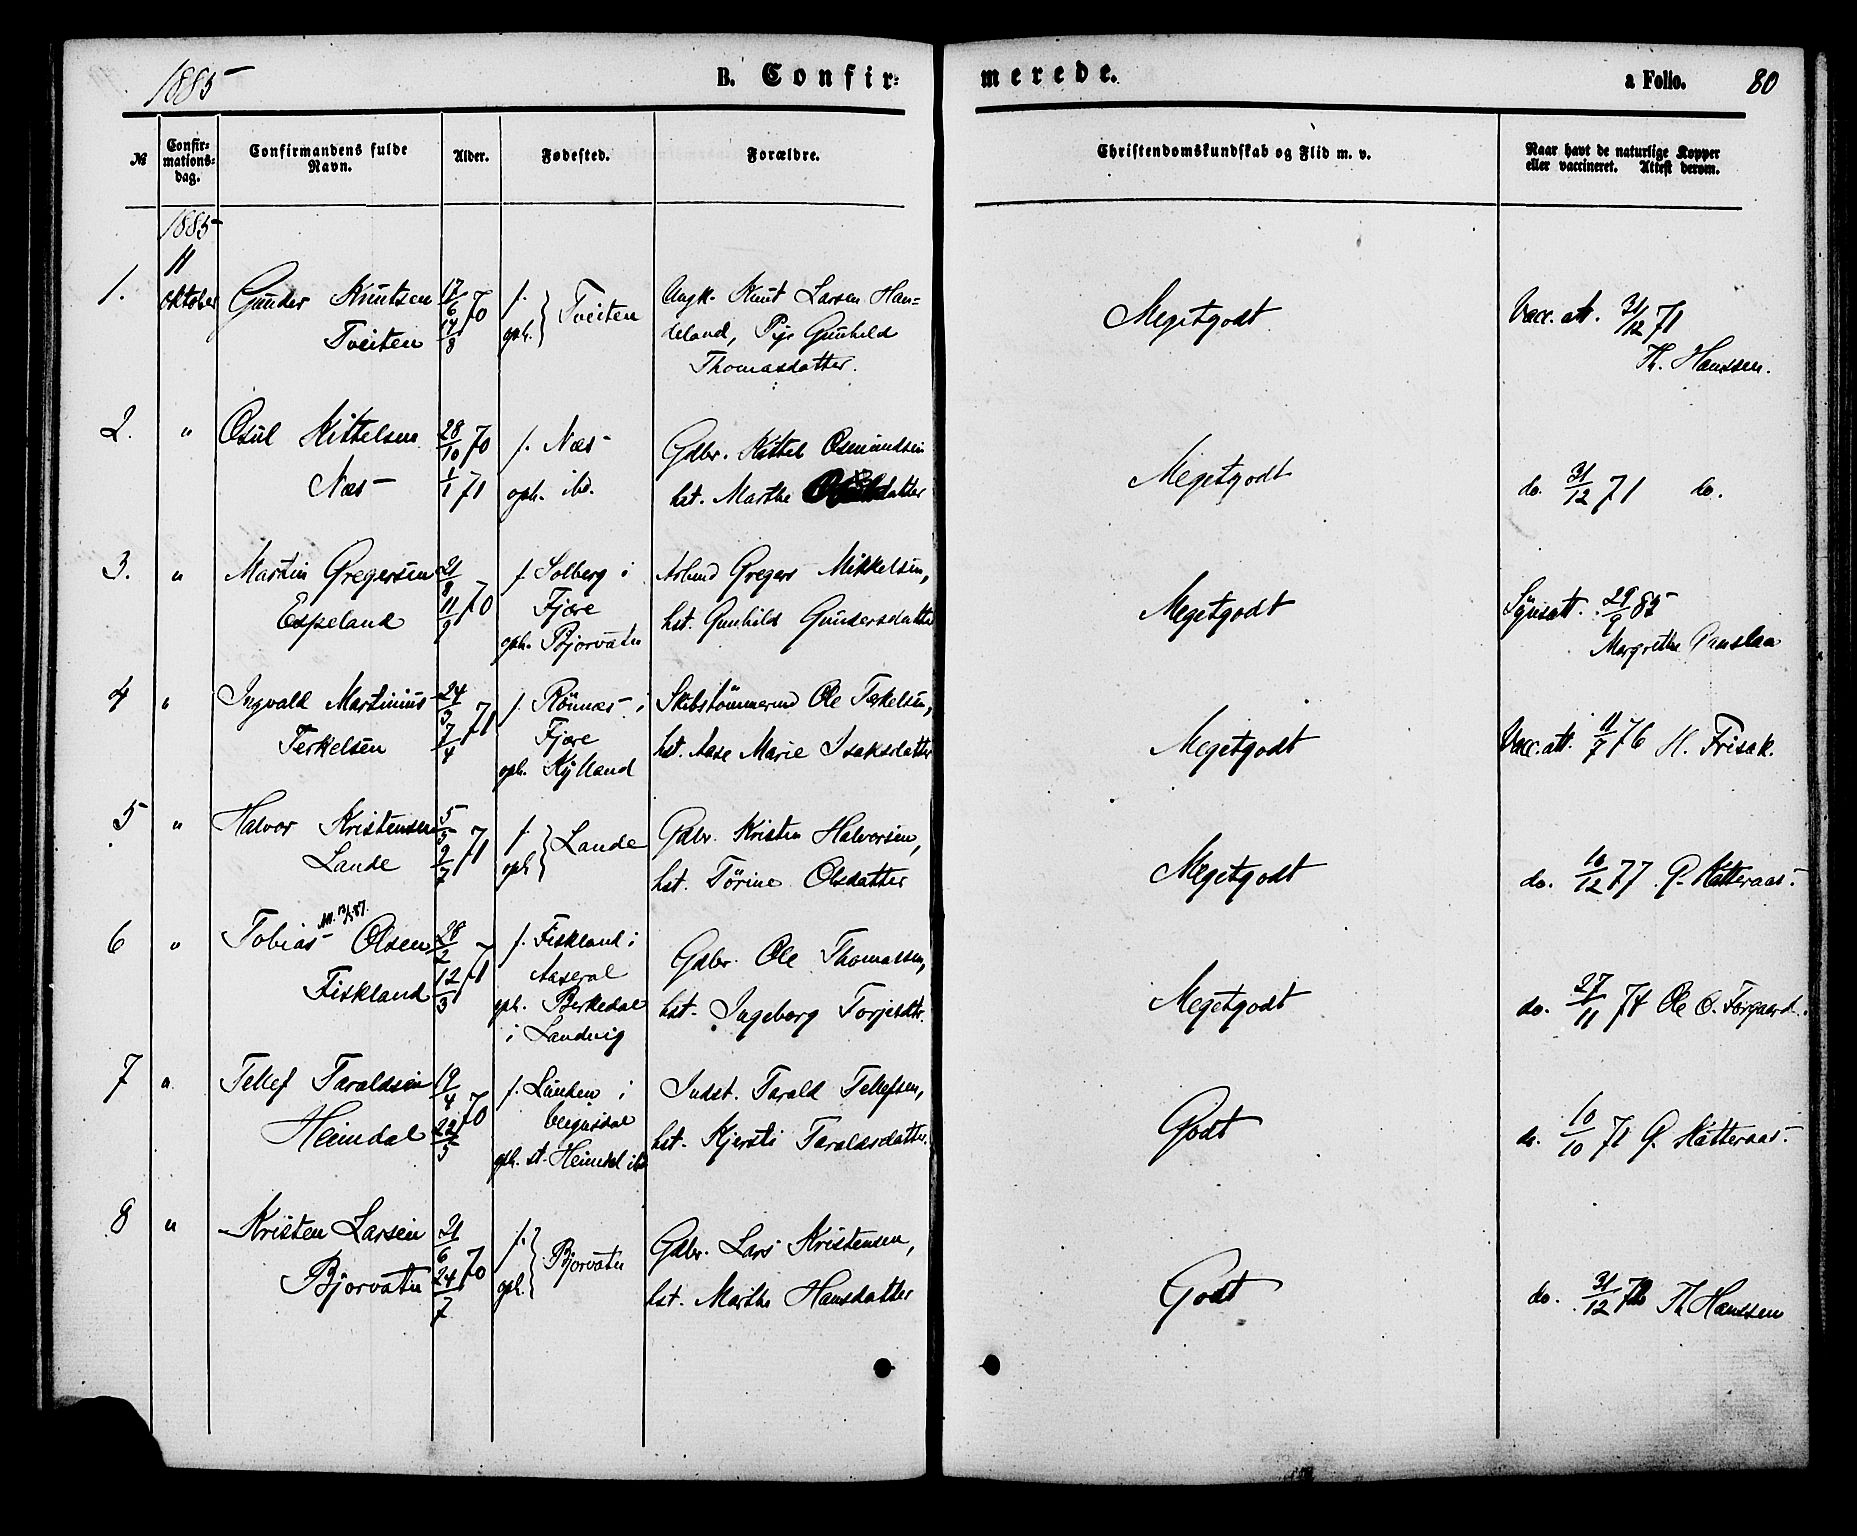 1885 B. Confir= merede. a Folio. 80
№ Confir=mations=dag. Confirmandens fulde Navn. Alder. Fødested. Forældre. Christendomskundskab og Flid m. v. Naar havt de naturlige Kopper eller vaccineret. Attest derom.
1885
11
1. Oktober Gunder Knutsen 17/6 70 f. Tveiten Ungk. Knut Larsen Han= Megetgodt Vacc. att. 31/12 71
Tveiten 14/8 oph. deland, Pige Gunhild Th. Hanssen.
Thomasdatter.
2. " Osul Kittelsen 28/10 70 f. Næs Gdbr. Kittel Osmundsen Megetgodt
Næs 1/1 71 oph. ibd. hst. Marthe datter do. 31/12 71 do.
3. " Martin Gregersen 21/8 70 f. Solberg i Arbmd Gregers Mikkelsen, Megetgodt Synsatt. 29/9 85
Espeland 11/9 Fjære hst. Gunhild Gundersdatter Margrethe
oph. Bjorvatn
4 " Ingvald Martinius 24/3 71 f. Rønnes i Skibstømmermd Ole Terkelsen, Megetgodt Vacc. att. 11/7 76 H. Frisak.
Terkelsen 7/4 Fjære hst. Aase Marie Isaksdatter
oph. Kylland
5 " Halvor Kristensen 5/5 71 f. Lande Gdbr. Kristen Halvorsen, Megetgodt
Lande 9/7 oph hst. Tørine Olsdatter do. 10/12 77 P. Hatteraas.
6 " Tobias Olsen 28/2 71 f. Fiskland i Gdbr. Ole Thomassen, Megetgodt
Fiskland 12/3 Aaseral hst. Ingeborg Torjesdtr. do. 27/11 74 Ole O.
oph. Berkedal
i Landvig
7 " Tellef Taraldsen 19/4 70 f. Lunden i Indst. Tarald Tellefsen, Godt
Heimdal 22/5 Vegusdal hst. Kjersti Taraldsdatter. do. 10/10 71 P. Hatteraas.
oph. st. Heimdal ibd
8 " Kristen Larsen 21/6 70 f. Bjorvatn Gdbr. Lars Kristensen, Godt
Bjorvatn 24/7 oph. hst. Marthe Hansdatter do. 31/12 72 Th Hanssen